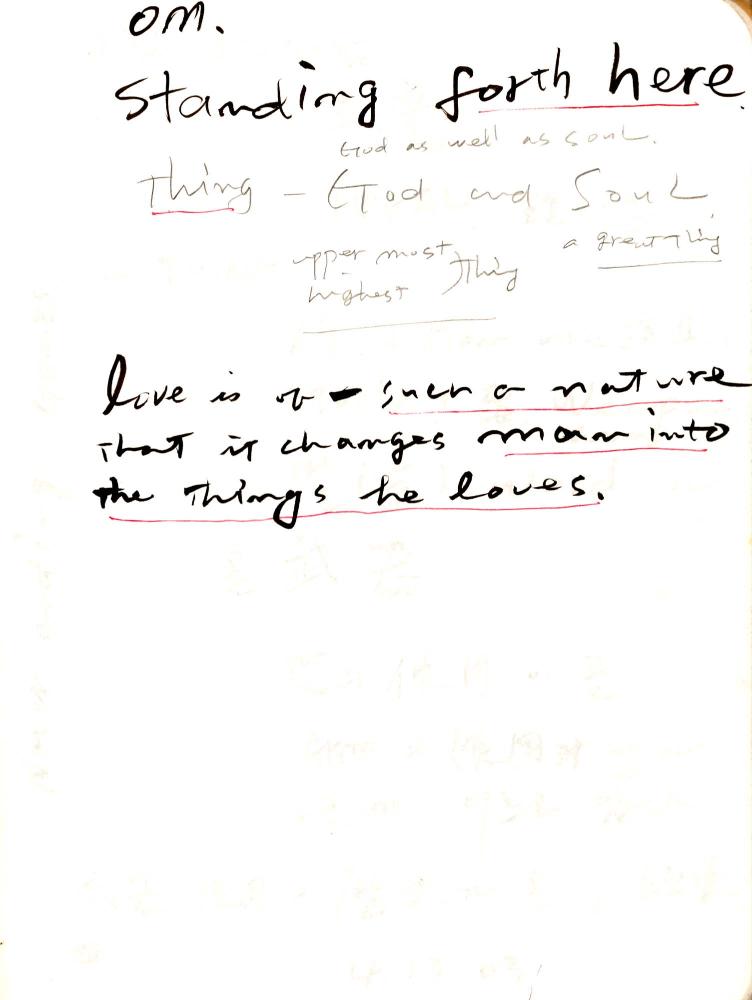 om.
Standing forth here.
God as well as soul.
Thing - God and Soul,
a great Thing
upper most
highest
Thing
love is of such a nature
that it changes man into
the things he loves.